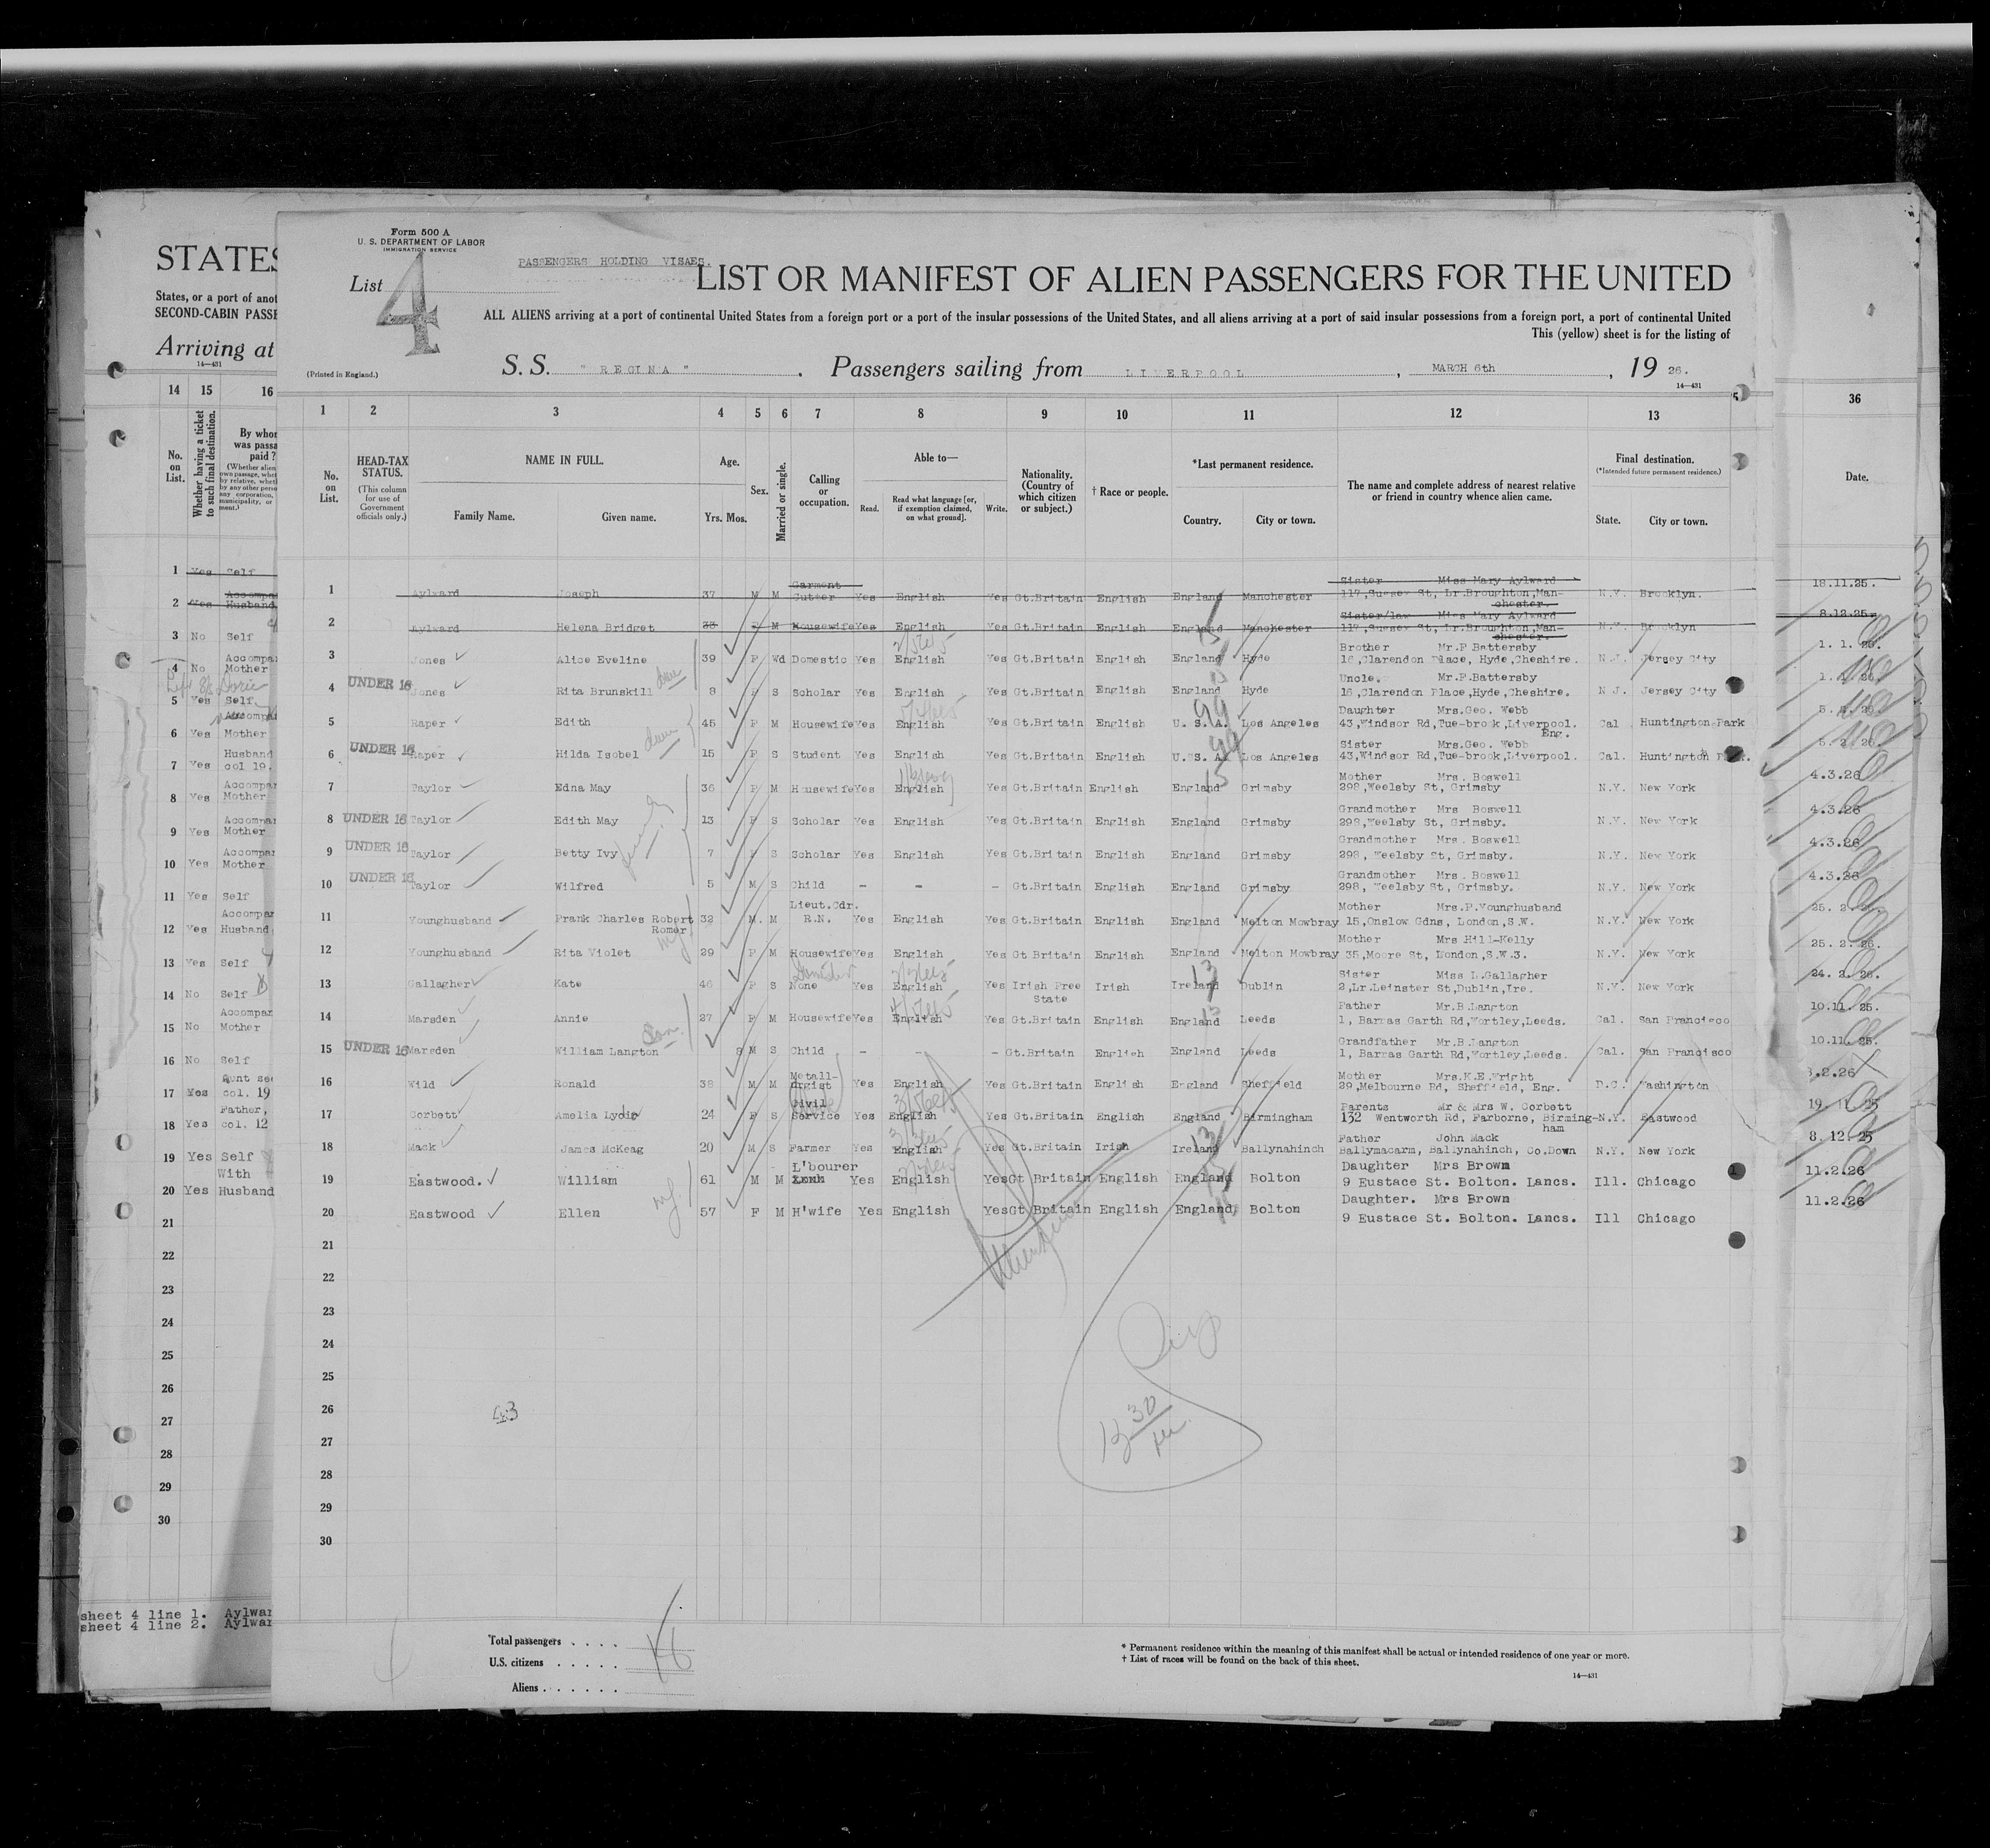 Form 500 A
U. S. DEPARTMENT OF LABOR
IMMIGRATION SERVICE
List 4
PASSENGERS HOLDING VISAES.
LIST OR MANIFEST OF ALIEN PASSENGERS FOR THE UNITED
ALL ALIENS arriving at a port of continental United States from a foreign port or a port of the insular possessions of the United States, and all aliens arriving at a port of said insular possessions from a foreign port, a port of continental United
This (yellow) sheet is for the listing of
(Printed in England.)
S. S. "REGINA". Passengers sailing from LIVERPOOL, MARCH 6th, 19 26.
14—431
1 2 3 4 5 6 7 8 9 10 11 12 13
No. on List.
HEAD-TAX STATUS.
(This column for use of Government officials only.)
NAME IN FULL.
Family Name. Given name.
Age.
Yrs. Mos.
Sex.
Married or single.
Calling or occupation.
Able to—
Read. Read what language [or, if exemption claimed, on what ground]. Write.
Nationality. (Country of which citizen or subject.)
† Race or people.
*Last permanent residence.
Country. City or town.
The name and complete address of nearest relative or friend in country whence alien came.
Final destination.
(*Intended future permanent residence.)
State. City or town.
1 Aylward Joseph 37 M M Garment Cutter Yes English Yes Gt.Britain English England Manchester Sister Miss Mary Aylward 117,Sussex St, Lr.Broughton,Man-chester. N.Y. Brooklyn.
2 Aylward Helena Bridget 38 F M Housewife Yes English Yes Gt.Britain English England Manchester Sister/law Miss Mary Aylward 117,Sussex St, Lr.Broughton,Man-chester. N.Y. Brooklyn
3 Jones Alice Eveline 39 F Wd Domestic Yes English Yes Gt.Britain English England Hyde Brother Mr.F Battersby 16,Clarendon Place, Hyde,Cheshire. N.J. Jersey City
4 UNDER 16 Jones Rita Brunskill 8 F S Scholar Yes English Yes Gt.Britain English England Hyde Uncle. Mr.F.Battersby 16,Clarendon Place,Hyde,Cheshire. N J. Jersey City
5 Raper Edith 45 F M Housewife Yes English Yes Gt.Britain English U. S. A. Los Angeles Daughter Mrs.Geo. Webb 43,Windsor Rd,Tue-brook,Liverpool. Eng. Cal Huntington Park
6 UNDER 16 Raper Hilda Isobel 15 F S Student Yes English Yes Gt.Britain English U. S. A. Los Angeles Sister Mrs.Geo. Webb 43,Windsor Rd,Tue-brook,Liverpool. Cal. Huntington
7 Taylor Edna May 36 F M Housewife Yes English Yes Gt.Britain English England Grimsby Mother Mrs. Boswell 298,Weelsby St, Grimsby N.Y. New York
8 UNDER 16 Taylor Edith May 13 F S Scholar Yes English Yes Gt.Britain English England Grimsby Grandmother Mrs Boswell 298,Weelsby St, Grimsby. N.Y. New York
9 UNDER 16 Taylor Betty Ivy 7 F S Scholar Yes English Yes Gt.Britain English England Grimsby Grandmother Mrs. Boswell 298, Weelsby St, Grimsby. N.Y. New York
10 UNDER 16 Taylor Wilfred 5 M S Child - - - Gt.Britain English England Grimsby Grandmother Mrs. Boswell 298, Weelsby St, Grimsby. N.Y. New York
11 Younghusband Frank Charles Robert Romer 32 M. M Lieut.Cdr. R.N. Yes English Yes Gt.Britain English England Melton Mowbray Mother Mrs.P.Younghusband 15,Onslow Gdns, London,S.W. N.Y. New York
12 Younghusband Rita Violet 29 F M Housewife Yes English Yes Gt.Britain English England Melton Mowbray Mother Mrs Hill-Kelly 35,Moore St, London,S.W.3. N.Y. New York
13 Gallagher Kate 46 F S None Yes English Yes Irish Free State Irish Ireland Dublin Sister Miss L.Gallagher 2,Lr.Leinster St,Dublin,Ire. N.Y. New York
14 Marsden Annie 27 F M Housewife Yes English Yes Gt.Britain English England Leeds Father Mr.B.Langton 1, Barras Garth Rd,Wortley,Leeds. Cal. San Francisco
15 UNDER 16 Marsden William Langton 8 M S Child - - - Gt.Britain English England Leeds Grandfather Mr.B.Langton 1, Barras Garth Rd,Wortley,Leeds. Cal. San Francisco
16 Wild Ronald 38 M M Metall-urgist Yes English Yes Gt.Britain English England Sheffield Mother Mrs.K.E.Wright 29,Melbourne Rd, Sheffield, Eng. D.C. Washington
17 Corbett Amelia Lydia 24 F S Civil Service Yes English Yes Gt.Britain English England Birmingham Parents Mr & Mrs W. Corbett 132 Wentworth Rd, Harborne, Birming-ham N.Y. Eastwood
18 Mack James McKeag 20 M S Farmer Yes English Yes Gt.Britain Irish Ireland Ballynahinch Father John Mack Ballymacarm, Ballynahinch, Co.Down N.Y. New York
19 Eastwood. William 61 M M L'bourer Yes English Yes Gt Britain English England Bolton Daughter Mrs Brown 9 Eustace St. Bolton. Lancs. Ill. Chicago
20 Eastwood Ellen 57 F M H'wife Yes English Yes Gt Britain English England, Bolton Daughter. Mrs Brown 9 Eustace St. Bolton. Lancs. Ill Chicago
21
22
23
24
25
26
27
28
29
30
43
Total passengers
U.S. citizens
Aliens
* Permanent residence within the meaning of this manifest shall be actual or intended residence of one year or more.
† List of races will be found on the back of this sheet.
14—431
STATES
States, or a port of anot
SECOND-CABIN PASSE
Arriving at
14—431
14 15 16
No. on List.
Whether having a ticket to such final destination.
By whom was passa paid?
1 Yes Self
2 Yes Accompa Husband
3 No Self
4 No Accompa Mother
5 Yes Self
6 Yes Accompa Mother
7 Yes Husband col 19.
8 Yes Accompa Mother
9 Yes Accompa Mother
10 Yes Accompa Mother
11 Yes Self
12 Yes Accompa Husband
13 Yes Self
14 No Self
15 No Accompa Mother
16 No Self
17 Yes Aunt see col. 19
18 Yes Father, col. 12
19 Yes Self
20 Yes With Husband
21
22
23
24
25
26
27
28
29
30
sheet 4 line 1. Aylwar
sheet 4 line 2. Aylwar
36
Date.
18.11.25.
8.12.25.
1. 1. 26.
1. 1. 26.
5. 2. 26.
5. 2. 26.
4.3.26
4.3.26
4.3.26
4.3.26
25. 2. 26.
25. 2. 26.
24. 2. 26.
10.11. 25.
10.11. 25.
8.12.25
11.2.26
11.2.26